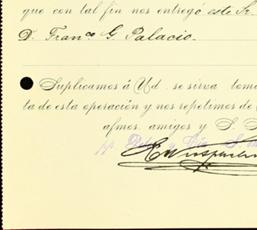 que con tal fin nos entregó este Sr.
D. Franco G. Palacio.
Suplicamos á Ud. se sirva toma
ta de esta operación y nos repetimos de
afmos. amigos y S. S.